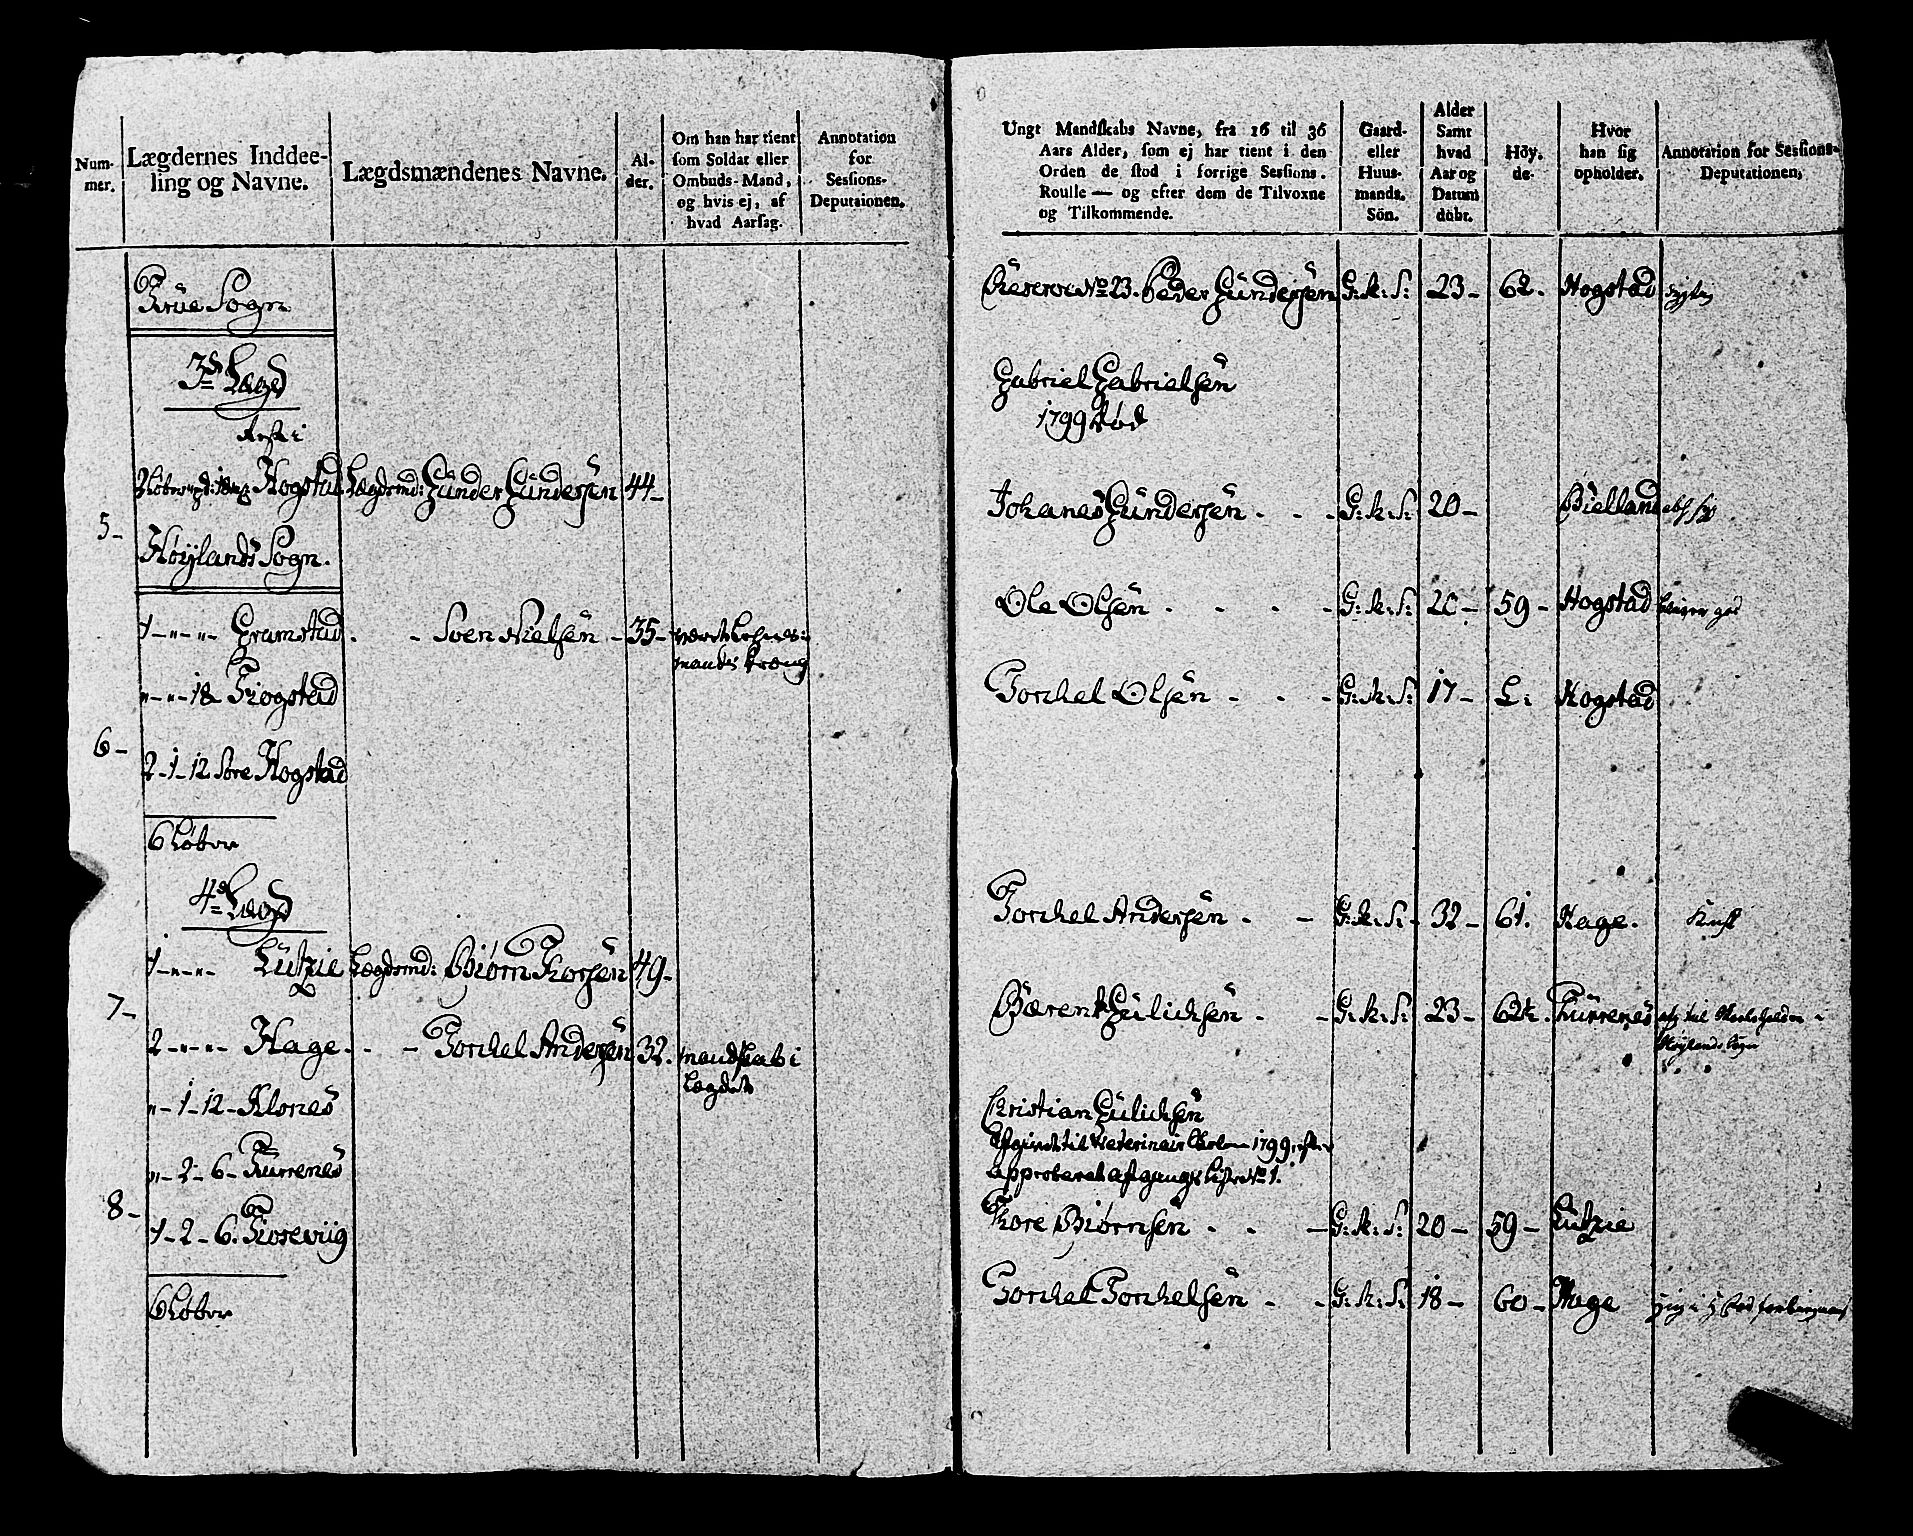 Num-
mer.
Lægdernes Inddee-
ling og Navne.
Lægdsmændenes Navne.
Al-
der.
Om han har tient
som Soldat eller
Ombuds-Mand,
og hvis ej, af
hvad Aarsag.
Annotation
for
Sessions-
Deputaionen.
Thiue Sogn
3d Lægd
Rest i
Hogstad Lægdsmd: Gunder Gundersen 44-
5-
Høylands Sogn.
1-"-"- Gramstad - Sven Nielsen - 35-
"-"-18 Fiogstad
6-
2-1-12 Sore Hogstad
6 Løber
4d Lægd
1-"-"- Lutzie Lægdsmd: Biørn Thorsen 49-
7-
2-"-"- Hage - Torckel Andersen 32. mandskab i
Lægdet
"-1-12- Klones
"-2-6- Kurrenes
8-
1-2-6. Fiosevig
6 Løber
Ungt Mandskabs Navne, fra 16 til 36
Aars Alder, som ej har tient i den
Orden de stod i forrige Sessions.
Roulle — og efter dem de Tilvoxne
og Tilkommende.
Gaard-
eller
Huus-
mands.
Sön.
Alder
Samt
hvad
Aar og
Datum
døbt.
Höy.
de-
Hvor
han sig
opholder.
Annotation for Sessions-
Deputationen,
Reserve No 23. Peder Gundersen G:k:S: 23- 62. Hogstad
Gabriel Gabrielsen
1799 død
Johanes Gundersen - - - G:k:S: 20- Bielland
Ole Olsen - - - - G:k:S: 20- 59- Hogstad
Torckel Olsen - - - G:k:S: 17- L: Hogstad
Torckel Andersen - - G:k:S: 32- 61. Hage.
Bærent Gulichsen - - G:k:S: 23- 62½.
Høylands Sogn
Christian Gulichsen
Afgivet til Veterinair Scolen 1799, efter
approberet afgangs Liste No 1.
Thore Biørnsen - - - G:k:S: 20- 59- Lutzie
Torckel Torckelsen - - G:k:S: 18- 60- Hage